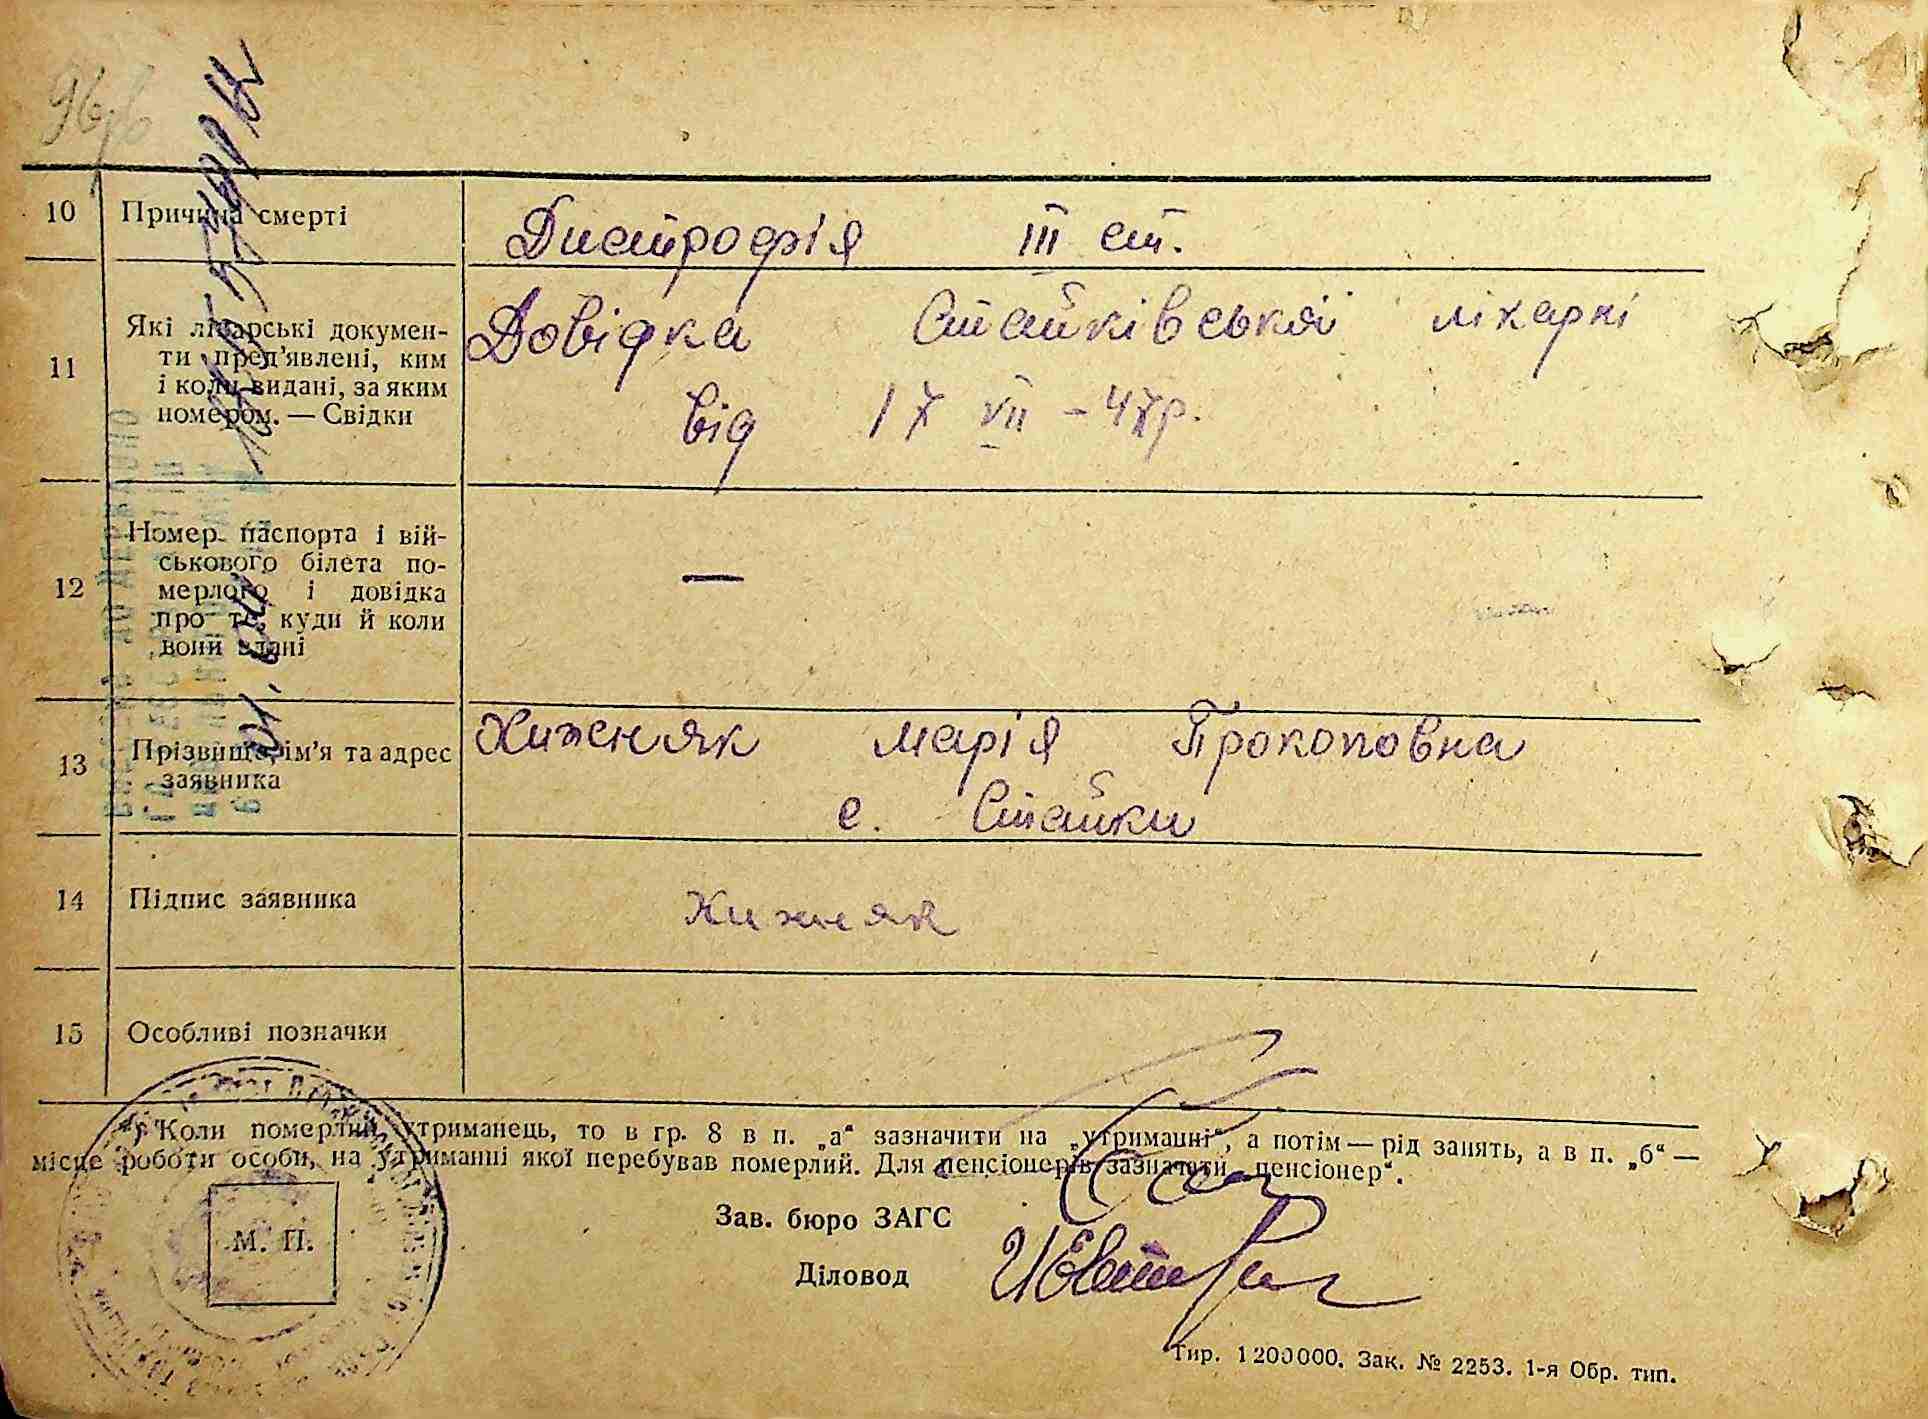 10 Причина смерті Дистрофія III ст.
11 Які лікарські докумен-
ти пред'явлені, ким
і коли видані, за яким
номером. — Свідки
Довідка Стайківської лікарні
від 17 VII - 47р.
12 Номер паспорта і вій-
ськового білета по-
мерлого і довідка
про те, куди й коли
вони здані
—
13 Прізвище, ім'я та адрес
заявника
Хижняк Марія Прокоповна
с. Стайки
14 Підпис заявника Хижняк
15 Особливі позначки
*) Коли померлий утриманець, то в гр. 8 в п. „а“ зазначити на „утриманні“, а потім — рід занять, а в п. „б“ —
місце роботи особи, на утриманні якої перебував померлий. Для пенсіонерів зазначати „пенсіонер“.
М. П.
Зав. бюро ЗАГС
Діловод
Тир. 1200000. Зак. № 2253. 1-я Обр. тип.